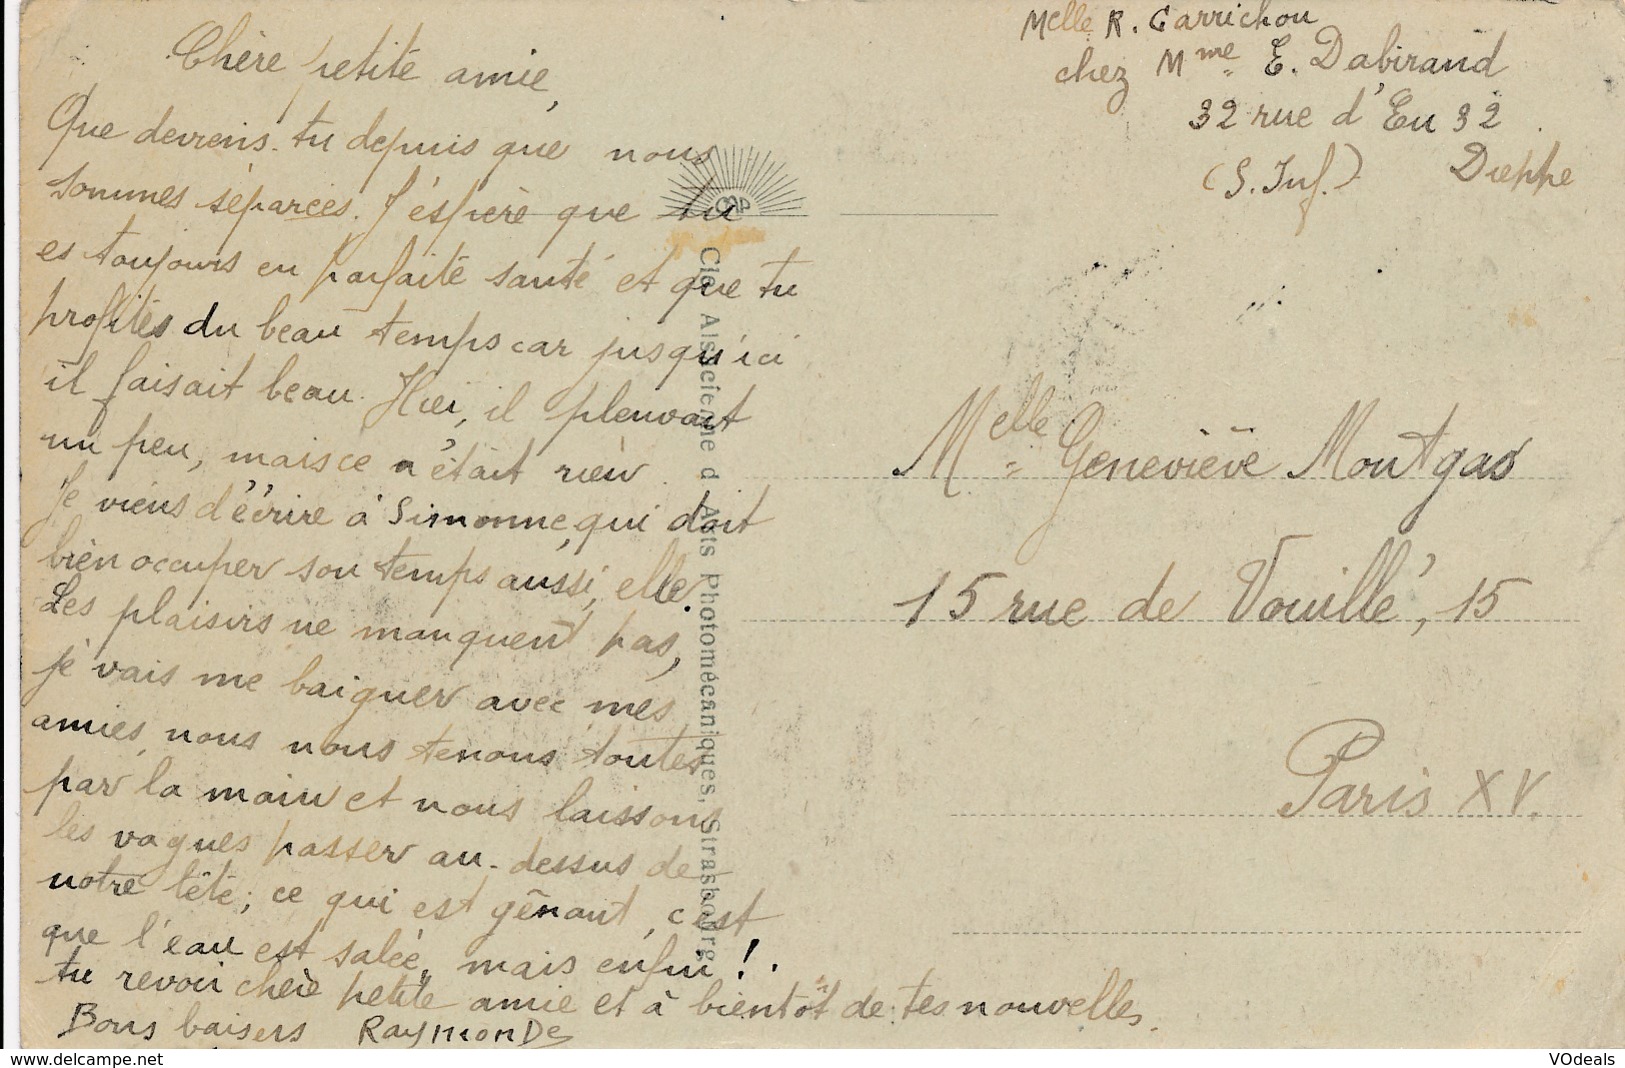 Chère petite amie,
Que deviens-tu depuis que nous
sommes séparées. J'éspère que tu
es toujours en parfaite santé et que tu
profites du beau temps car jusqu'ici
il faisait beau. Hier, il pleuvait
un peu, mais ce n'était rien.
Je viens d'écrire à Simonne, qui doit
bien occuper son temps aussi, elle.
Les plaisirs ne manquent pas,
je vais me baigner avec mes
amies, nous nous tenons toutes
par la main et nous laissons
les vagues passer au-dessus de
notre tête; ce qui est gênant, c'est
que l'eau est salée, mais enfin!.
tu revoir chère petite amie et à bientôt de tes nouvelles.
Bons baisers RAYMONDE
Melle R. Garrichou
chez Mme E. Dabirand
32 rue d'Eu 32
(S. Inf.) Dieppe
Cie Alsacienne d'Arts Photomécaniques, Strasbourg
CAP
Melle Geneviève Montgas
15 rue de Vouillé, 15
Paris XV.
www.delcampe.net
VOdeals